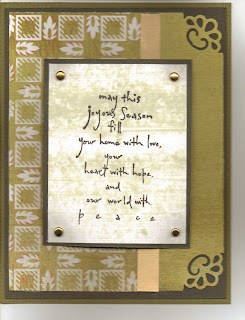 may this
joyous Season
fill
your home with love,
your
heart with hope,
and
our world with
peace